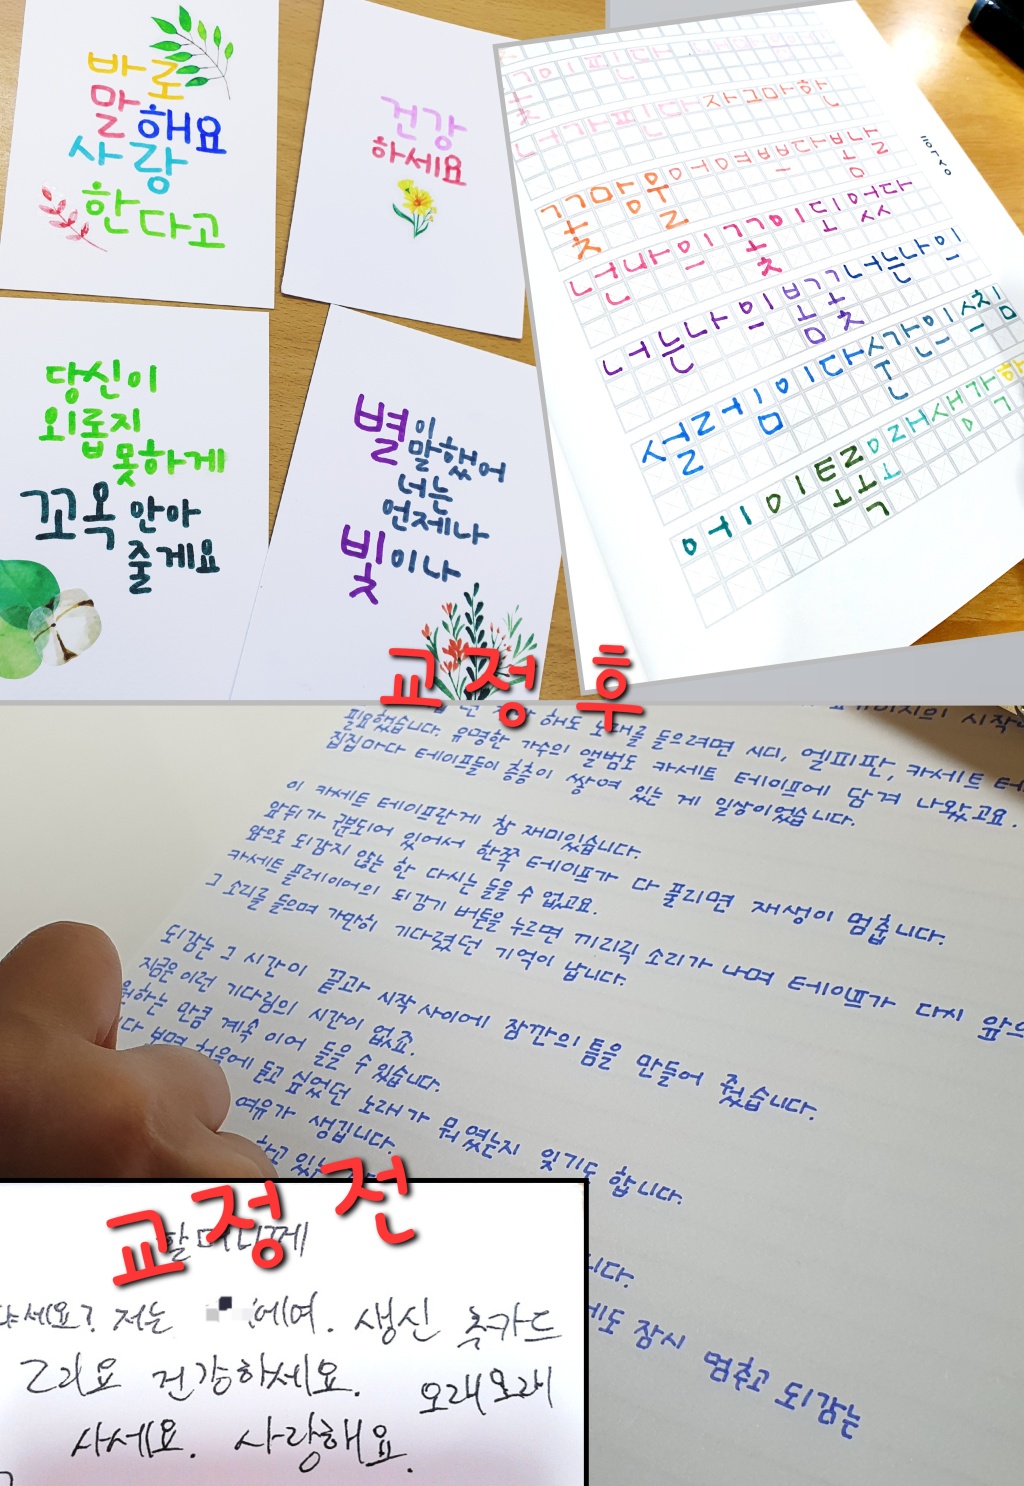 바로
말해요
사랑
한다고
건강
하세요
당신이
외롭지
못하게
꼬옥 안아
줄게요
별이
말했어
너는
언제나
빛이나
꽃이핀다
너가핀다 자그마한
꽃망울 어여쁘다 봄날
넌 나의 꽃이 되었다
너는 나의 봄꽃 너는 나의
설렘이다 순간의
교정 후
해도 노래를 들으려면 씨디, 엘피판, 카세트
필요했습니다. 유명한 가수의 앨범도 카세트 테이프에 담겨 나왔고요.
집집마다 테이프들이 층층이 쌓여 있는 게 일상이었습니다.
이 카세트 테이프란게 참 재미있습니다.
앞뒤가 구분되어 있어서 한쪽 테이프가 다 풀리면 재생이 멈춥니다.
앞으로 되감지 않는 한 다시는 들을 수 없고요.
카세트 플레이어의 되감기 버튼을 누르면 끼리릭 소리가 나며 테이프가 다시 앞으
그 소리를 들으며 가만히 기다렸던 기억이 납니다.
되감는 그 시간이 끝과 시작 사이에 잠깐의 틈을 만들어 줬습니다.
지금은 이런 기다림의 시간이 없죠.
원하는 만큼 계속 이어 들을 수 있습니다.
보면 처음에 듣고 싶었던 노래가 뭐였는지 잊기도 합니다.
여유가 생깁니다.
하고 있는
니다.
에도 잠시 멈추고 되감는
교정 전
할머니께
세요? 저는 에여. 생신 추카드
그리요 건강하세요. 오래오래
사세요. 사랑해요.